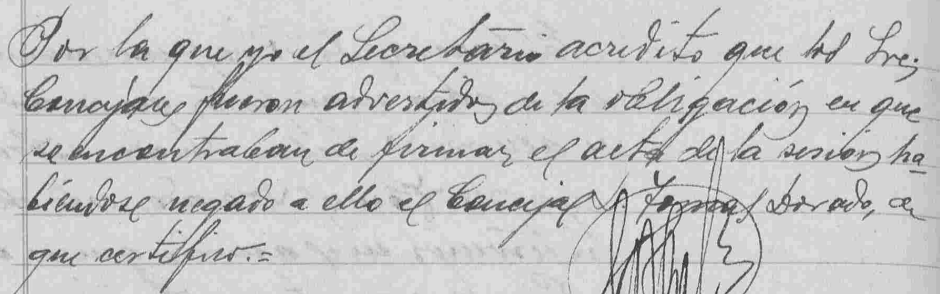 Por la que yo el Secretario acredito que los Sres
Concejales fueron advertidos de la obligación en que
se encontraban de firmar el acta de la sesion, ha-
biéndose negado a ello el Concejal Tomas Dorado, de
que certifico.=